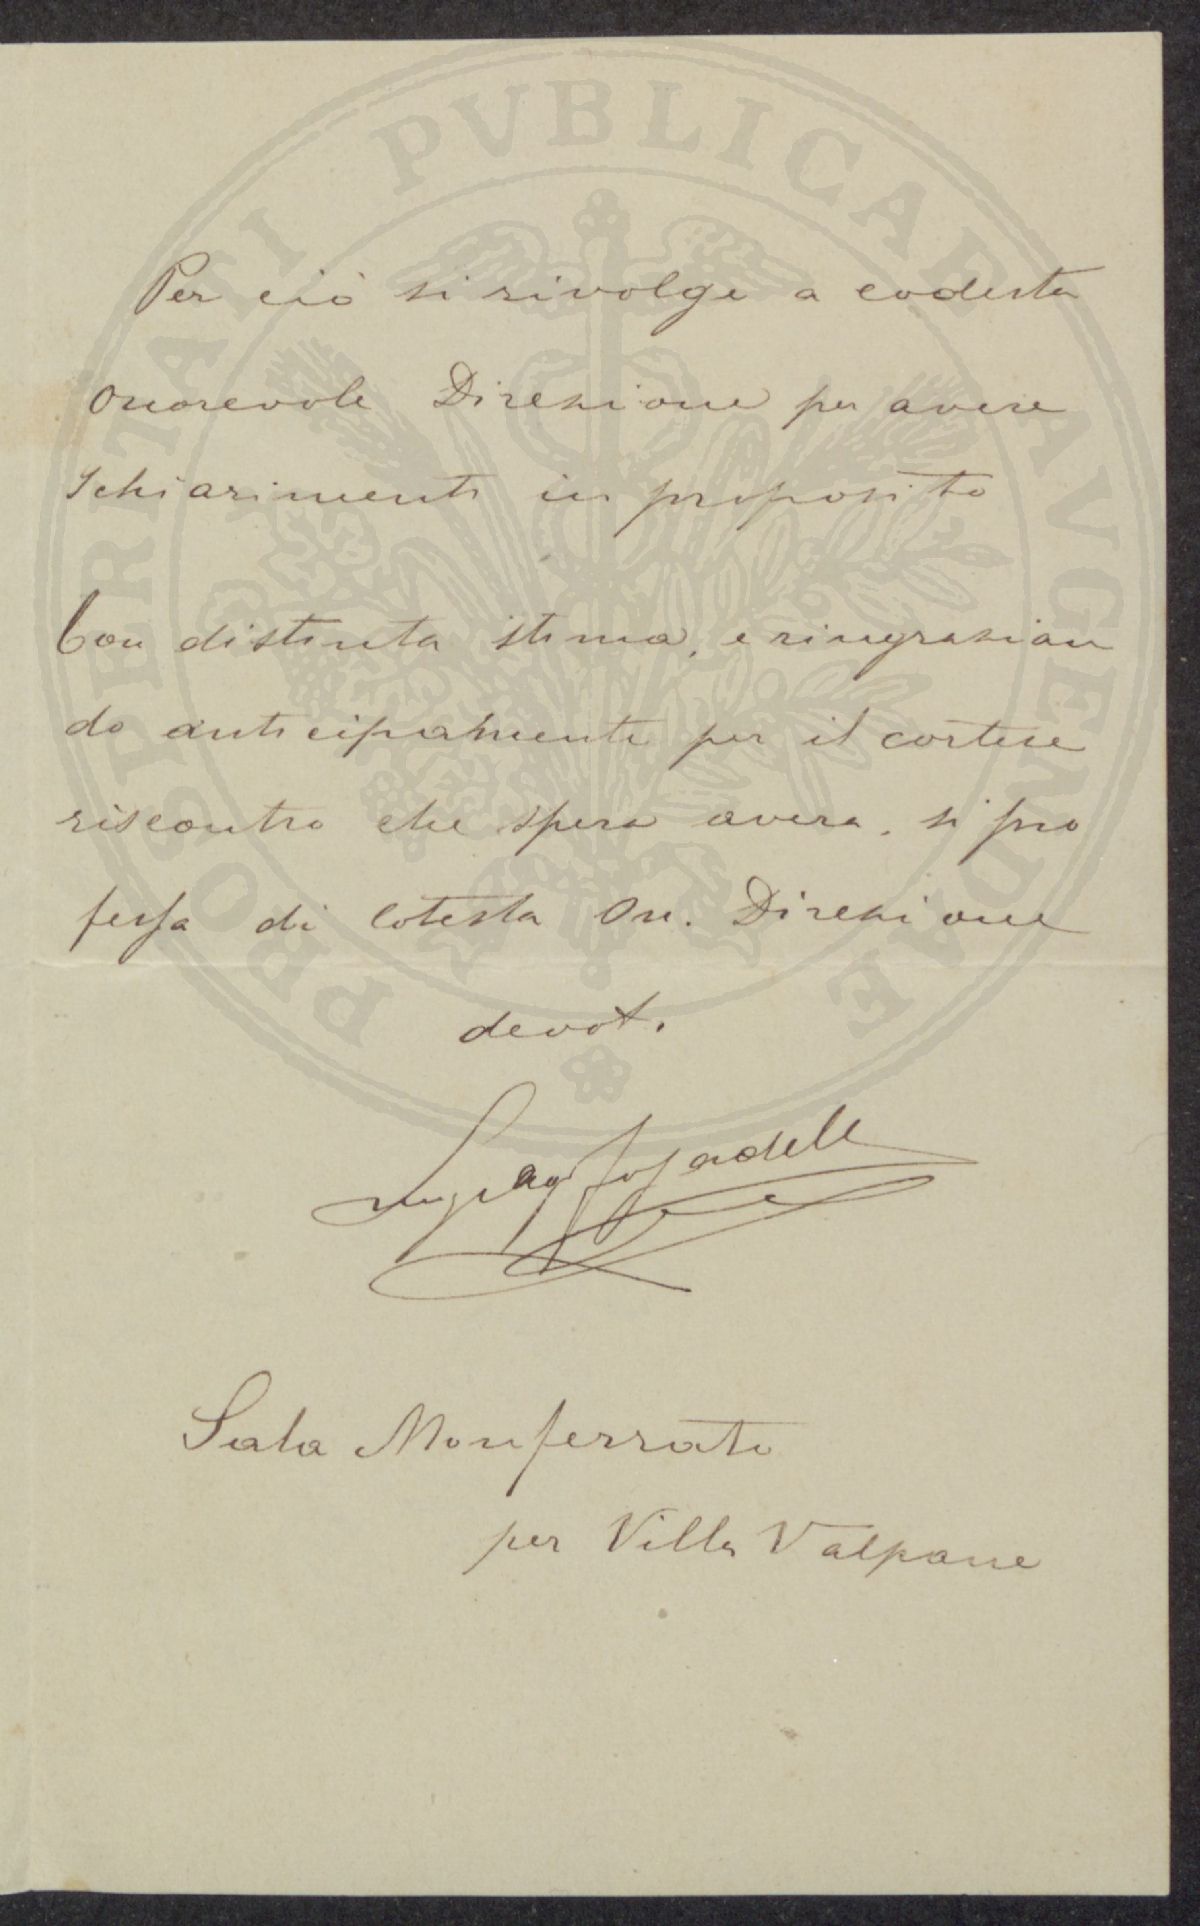 PROSPERITATI PVBLICAE AVGENDAE
Per ciò si rivolge a codesta
Onorevole Direzione per avere
Schiarimenti in proposito
Con distinta stima, e ringrazian
do anticipatamente per il cortese
riscontro che spera avera, si pro
fessa di Cotesta On. Direzione
devot.
Sala Monferrato
per Villa Valpane